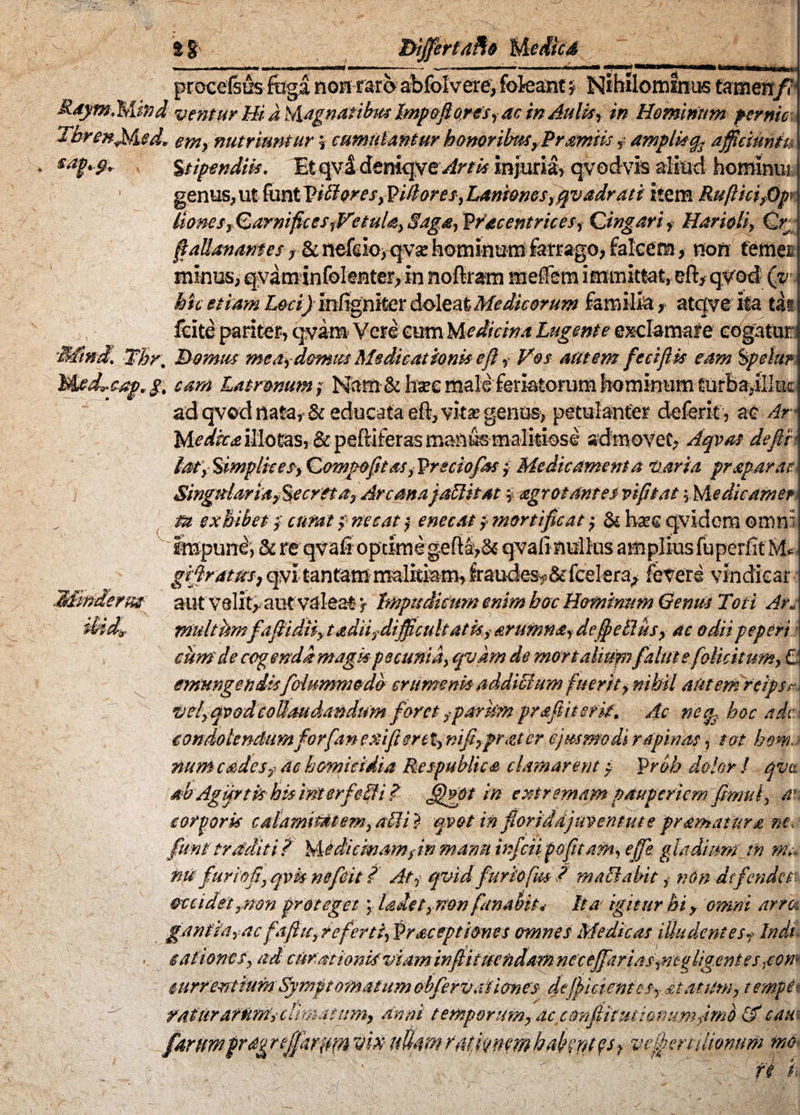 28 Dissertatio Medica
procefsus fuga non raro absolvere, soleant; Nihilominus tamen
Raym. Mind ventur Hi à Magnatibus Impostores, ac in Aulis, in Hominum pernic
Thren. Med. em, nutriuntur; cumulantur honoribus, Præmiis, amplisq; afficiuntu
cap. 9. Stipendiis. Et qvâ deniqve Artis injuriâ, qvodvis aliud hominum
genus, ut sunt Pictores, Pistores, Laniones, qvadrati item Rustici, Op
liones, Carnifices, Vetulæ, Sagæ, Præcentrices, Cingari, Harioli, Cr
stallanantes, & nescio, qvæ hominum farrago, falcem, non temer
minus, qvàm insolenter, in nostram messem immittat, est, qvod (v
hic etiam Loci) insigniter doleat Medicorum familia, atqve ita tam
scitè pariter, qvàm Verè cum Medicina Lugente exclamare cogatur:
Mind. Thr. Domus mea, domus Medicationis est, Vos autem fecistis eam Spelun
Med. cap. 8. cam Latronum; Nam & hæc malè feriatorum hominum turba, illuc
ad qvod nata, & educata est, vitæ genus, petulanter deserit, ac Ar
Medicæ illotas, & pestiferas manus malitiosè admovet, Aqvas destil
lat, Simplices, Compositas, Preciosas; Medicamenta varia præparat
Singularia, Secreta, Arcana jactitat; ægrotantes visitat; Medicamen
ta exhibet; curat; necat; enecat; mortificat; & hæc qvidem omni
impunè, & re qvasi optimè gestâ, & qvasi nullus amplius superfit Ma
gistratus, qvi tantam malitiam, fraudes, & scelera, severè vindicar
Minderus aut velit, aut valeat; Impudicum enim hoc Hominum Genus Toti Ar
ibid. multùm fastidii, tædii, difficultatis, ærumnæ, despectûs, ac odii peperi
cùm de cogendâ magis pecuniâ, qvàm de mortalium salute solicitum, &
emungendis solummodò crumenis addictum fuerit, nihil autem reipsâ
vel, qvod collaudandum foret, parùm præstiterit. Ac neq; hoc ade
condolendum forsan existeret, nisi, præter ejusmodi rapinas, tot hom
num cædes, ac homicidia Respublicæ clamarent; Proh dolor! qvo
ab Agyrtis his interfecti? Qvot in extremam pauperiem simul, a
corporis calamitatem, acti? qvot in floridâ juventute præmaturæ ne
sunt traditi? Medicinam, in manu inscii positam, esse gladium in ma
nu furiosi, qvis nescit? At, qvid furiosus? mactabit, non defendet
occidet, non proteget; lædet, non sanabit. Ita igitur hi, omni arro
gantia, ac fastu, referti, Præceptiones omnes Medicas illudentes, Indi
cationes, ad curationis viam instituendam necessarias, negligentes, con
currentium Symptomatum observationes despicientes, ætatum, tempe
raturarum, climatum, anni temporum, ac constitutionum, imò & cau
sarum prægressarum vix ullam rationem habentes, vespertilionum mo
re i